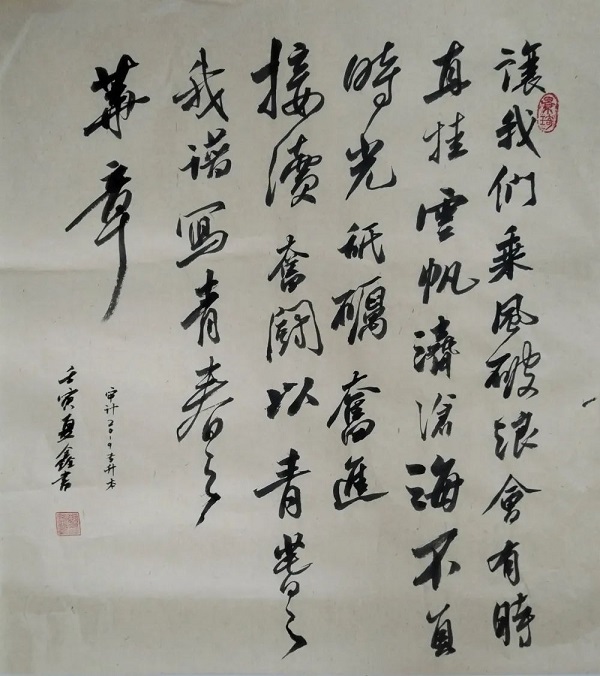 讓我們乘風破浪會有時
直挂雲帆濟滄海不負
時光砥礪奮進
接續奮鬪以青春之
我譜寫青春之
華章
審計2019专升本
壬寅 鑫書
景琦